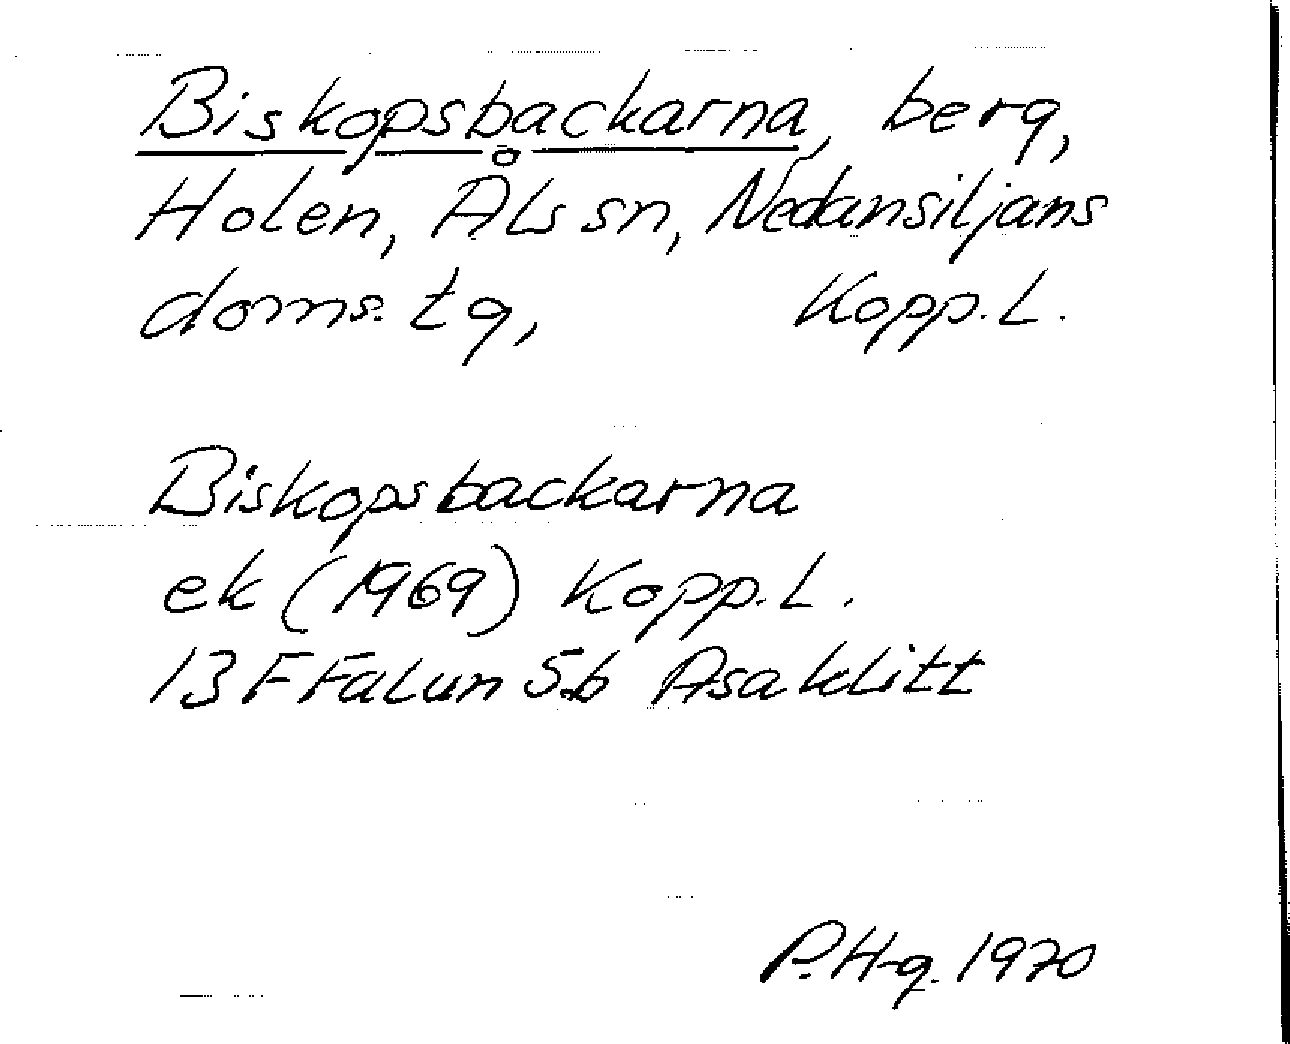 Biskopsbackarna, berg,
Holen, Åls sn, Nedansiljans
doms. tg, Kopp. L.
Biskopsbackarna
ek (1969) Kopp. L.
13 F Falun 5b Asaklitt
P. H-g. 1970